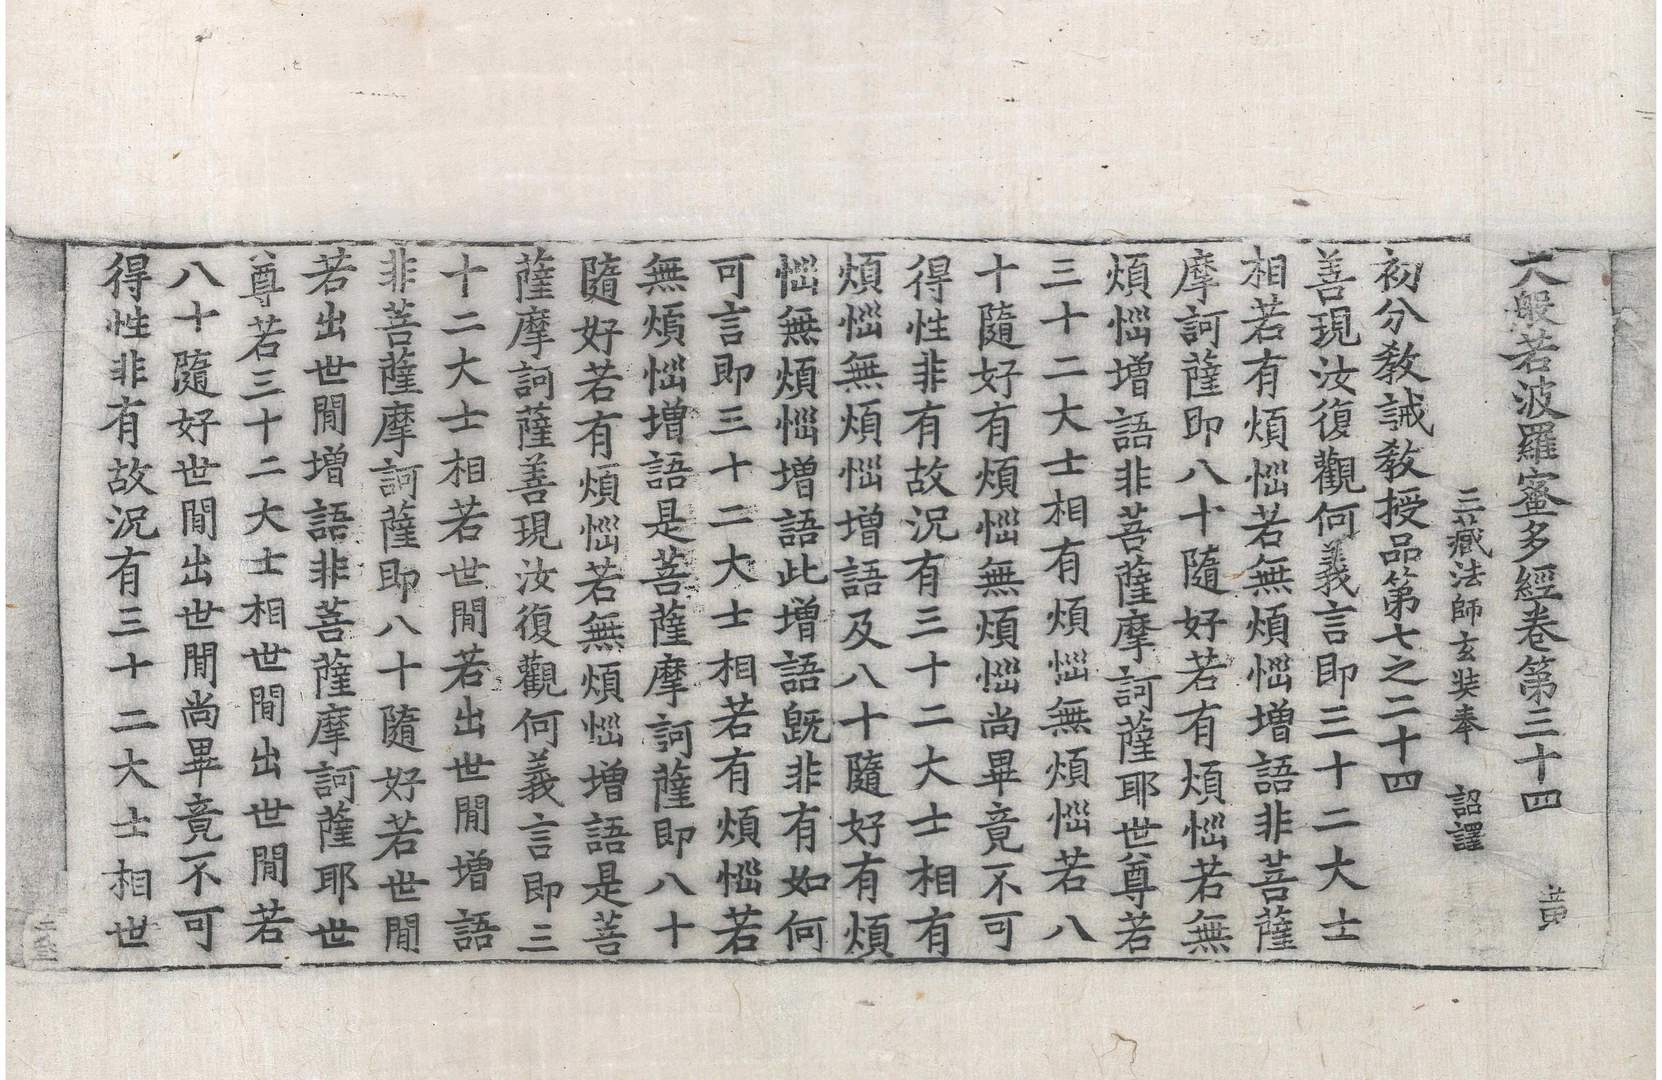 大般若波羅蜜多經卷第三十四 黃
三藏法師玄奘奉 詔譯
初分教誡教授品第七之二十四
善現汝復觀何義言即三十二大士
相若有煩惱若無煩惱增語非菩薩
摩訶薩即八十隨好若有煩惱若無
煩惱增語非菩薩摩訶薩耶世尊若
三十二大士相有煩惱無煩惱若八
十隨好有煩惱無煩惱尚畢竟不可
得性非有故況有三十二大士相有
煩惱無煩惱增語及八十隨好有煩
惱無煩惱增語此增語既非有如何
可言即三十二大士相若有煩惱若
無煩惱增語是菩薩摩訶薩即八十
隨好若有煩惱若無煩惱增語是菩
薩摩訶薩善現汝復觀何義言即三
十二大士相若世間若出世間增語
非菩薩摩訶薩即八十隨好若世間
若出世間增語非菩薩摩訶薩耶世
尊若三十二大士相世間出世間若
八十隨好世間出世間尚畢竟不可
得性非有故況有三十二大士相世